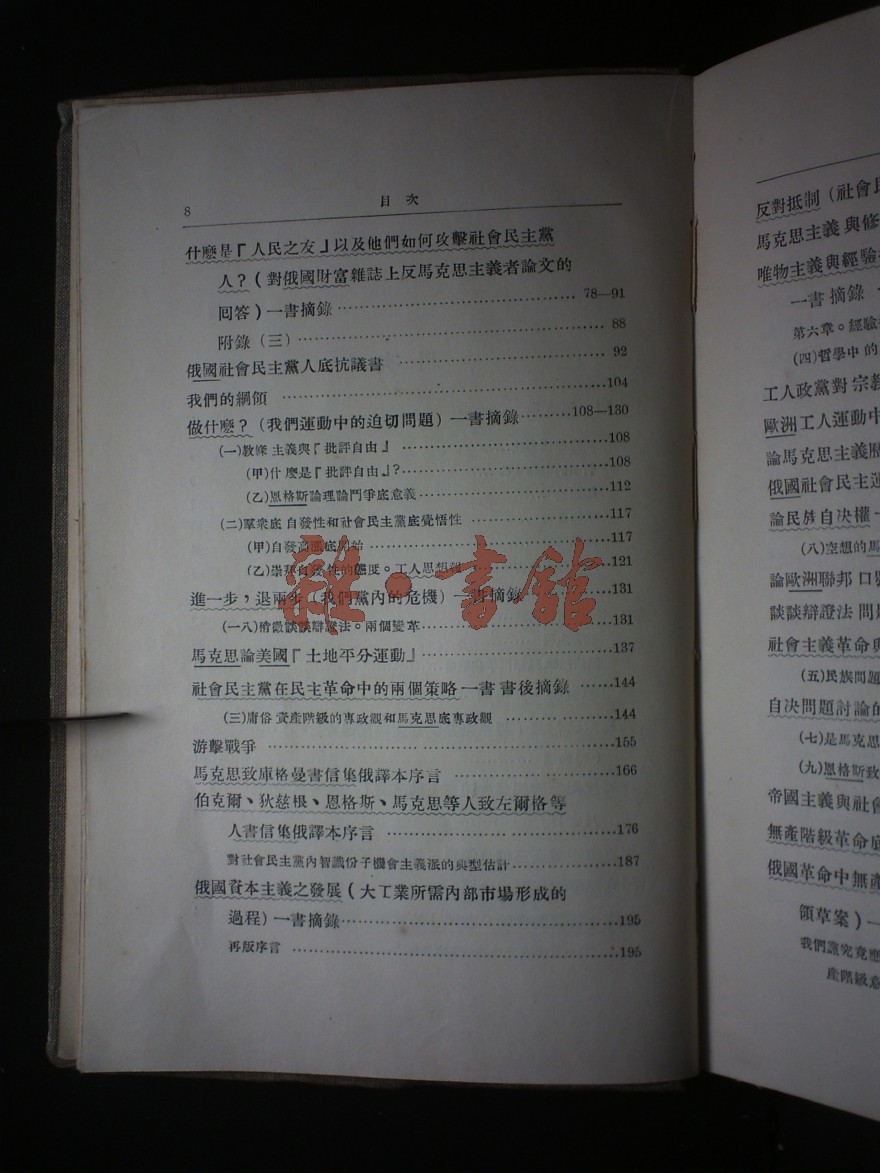 8
目次
什麼是『人民之友』以及他們如何攻擊社會民主黨
人？(對俄國財富雜誌上反馬克思主義者論文的
囘答)一書摘錄 78—91
附錄(三) 88
俄國社會民主黨人底抗議書 92
我們的綱領 104
做什麼？(我們運動中的迫切問題)一書摘錄 108—130
(一)教條主義與『批評自由』 108
(甲)什麼是『批評自由』? 108
(乙)恩格斯論理論鬥爭底意義 112
(二)羣衆底自發性和社會民主黨底覺悟性 117
(甲)自發高漲底開始 117
(乙)崇拜自發性的態度。工人思想報 121
進一步，退兩步(我們黨內的危機)一書摘錄 131
(一八)稍微談談辯證法。兩個變革 131
馬克思論美國『土地平分運動』 137
社會民主黨在民主革命中的兩個策略一書書後摘錄 144
(三)庸俗資產階級的專政觀和馬克思底專政觀 144
游擊戰爭 155
馬克思致庫格曼書信集俄譯本序言 166
伯克爾、狄慈根、恩格斯、馬克思等人致左爾格等
人書信集俄譯本序言 176
對社會民主黨內智識份子機會主義派的典型估計 187
俄國資本主義之發展(大工業所需內部市場形成的
過程)一書摘錄 195
再版序言 195
雜·書館
反對抵制(社會民
馬克思主義與修
唯物主義與經驗
一書摘錄
第六章。經驗
(四)哲學中的
工人政黨對宗教
歐洲工人運動中
論馬克思主義歷
俄國社會民主運
論民族自決權
(八)空想的馬
論歐洲聯邦口號
談談辯證法問題
社會主義革命與
(五)民族問題
自決問題討論的
(七)是馬克思
(九)恩格斯致
帝國主義與社會
無產階級革命底
俄國革命中無產
領草案)一
我們黨究竟應
產階級意